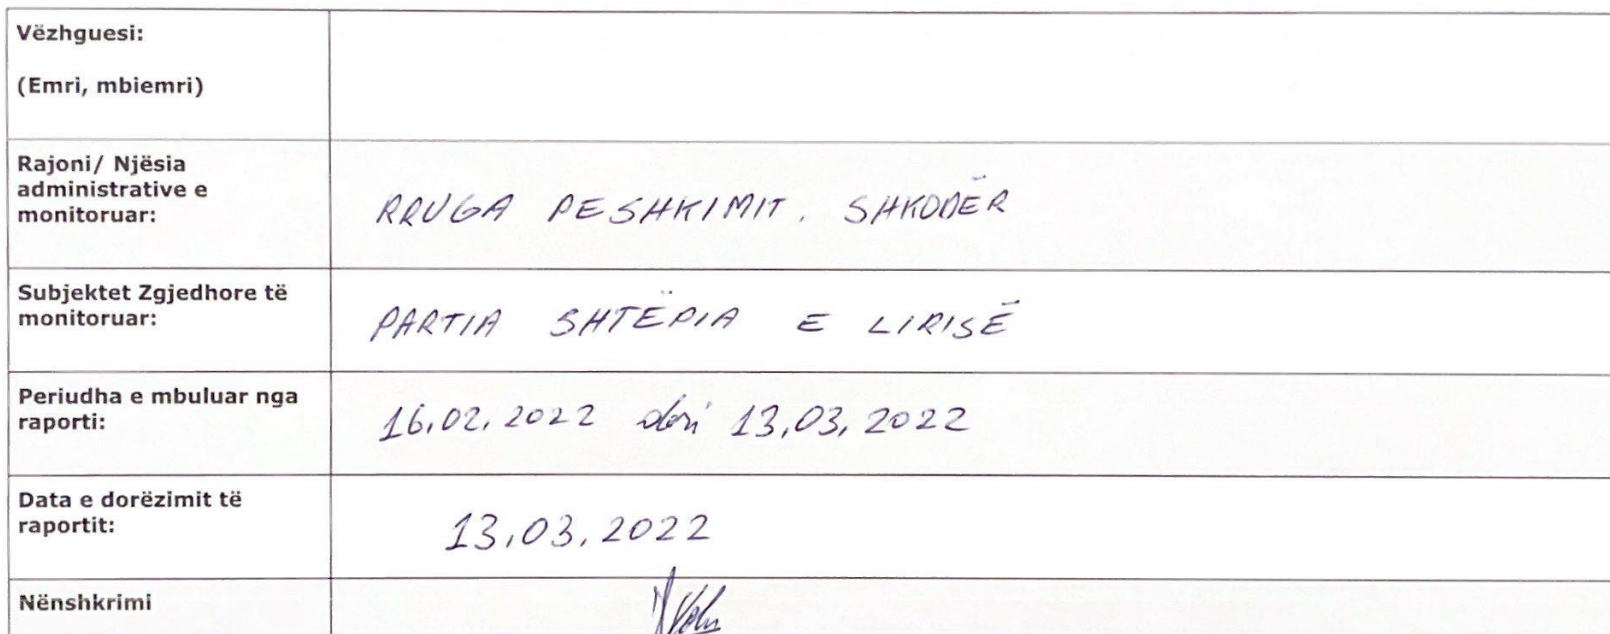 Vëzhguesi:
(Emri, mbiemri)
Rajoni/ Njësia
administrative e
monitoruar:
RRUGA PESHKIMIT. SHKODËR
Subjektet Zgjedhore të
monitoruar:
PARTIA SHTËPIA E LIRISË
Periudha e mbuluar nga
raporti:
16.02.2022 deri 13.03.2022
Data e dorëzimit të
raportit:
13.03.2022
Nënshkrimi